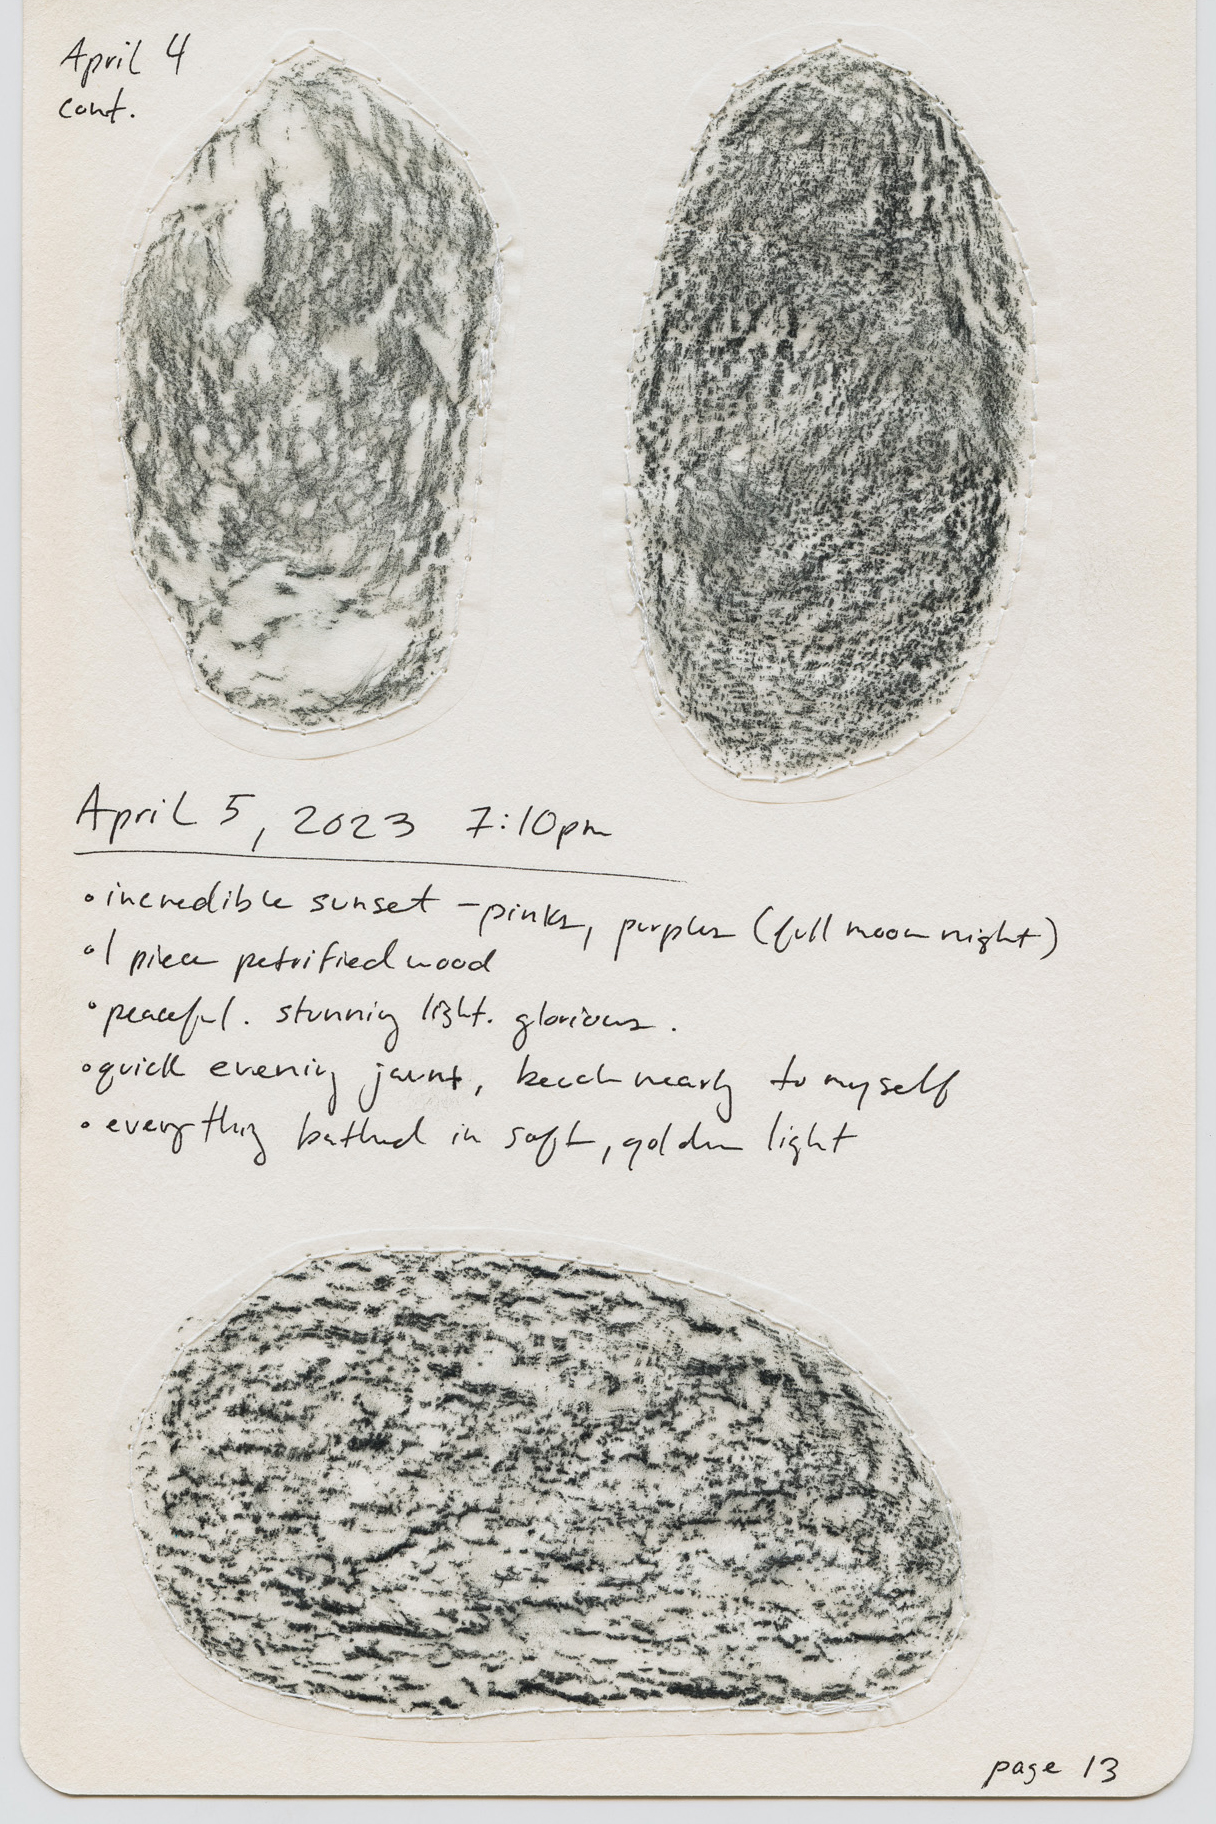 April 4
cont.
April 5, 2023 7:10pm
• incredible sunset - pinks, purples (full moon night)
• 1 piece petrified wood
• peaceful. stunning light. glorious.
• quick evening jaunt, beach nearly to myself
• everything bathed in soft, golden light
page 13